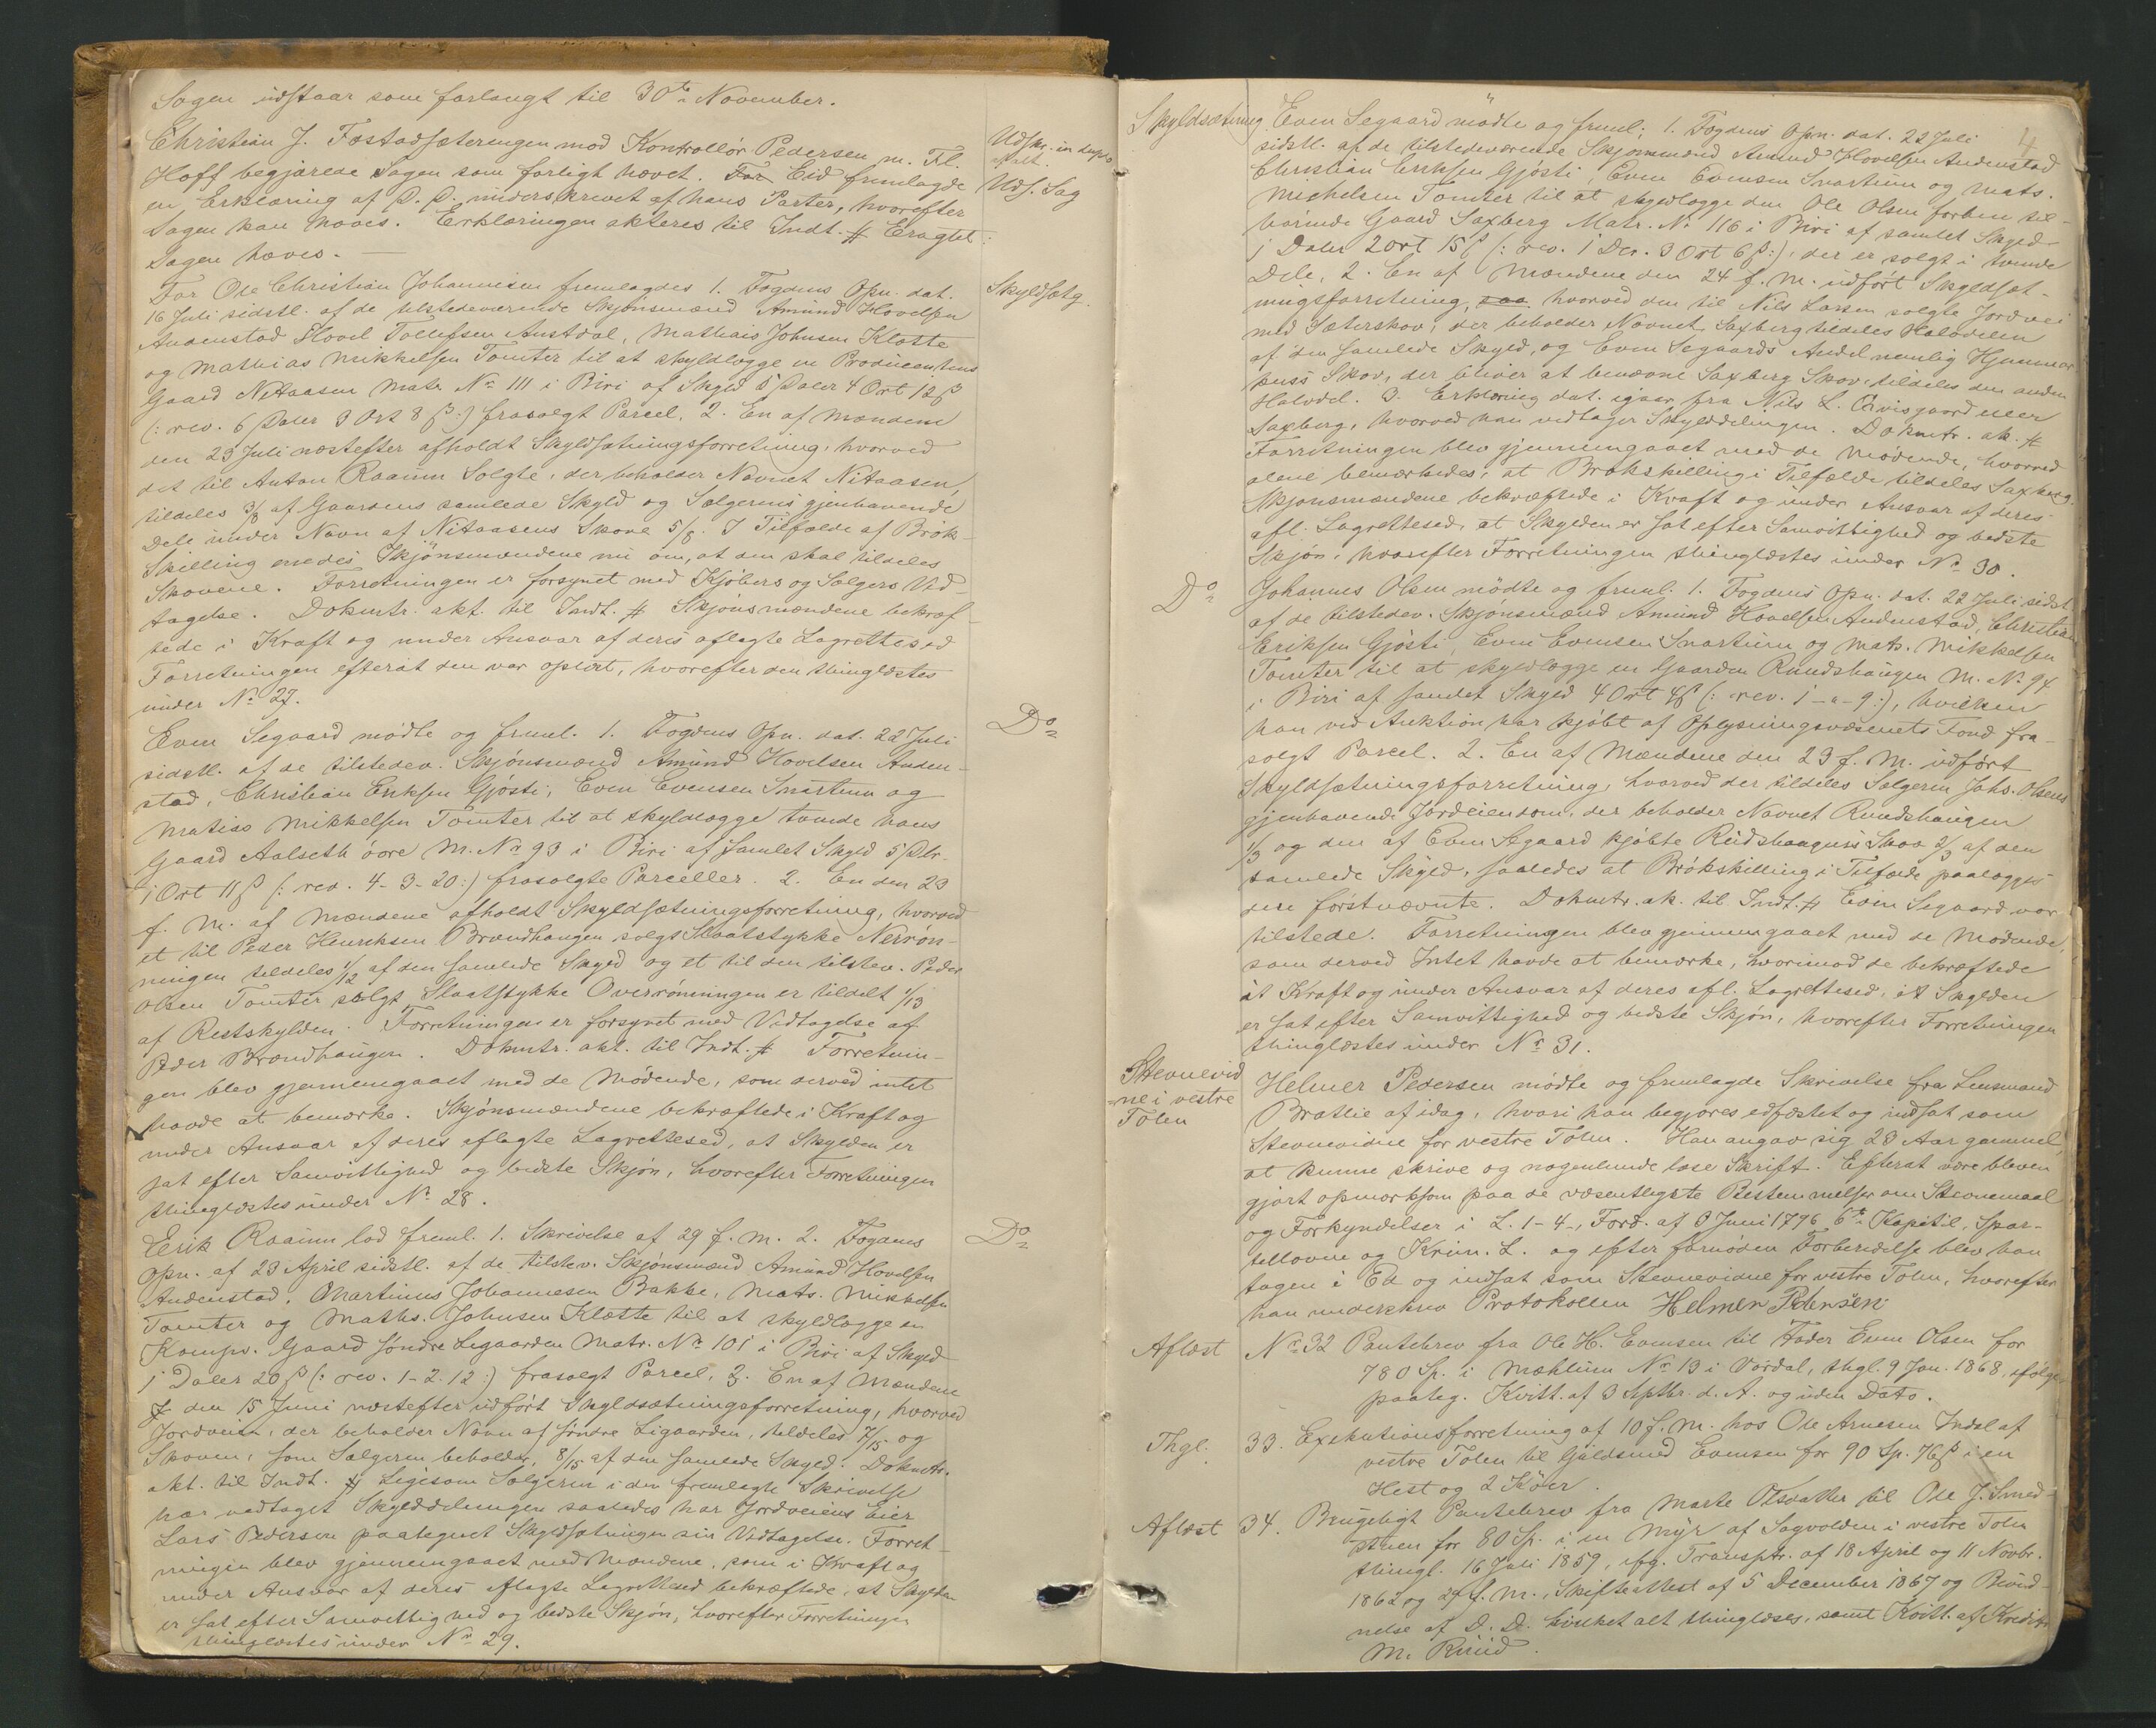 Sagen udstaar som forlangt til 30te November.
Udskr. in duplo
Christian J. Fostadsæterengen mod Kontrollör Pedersen m. Fl.
Hoff begjærede Sagen som forligt hævet. For Eid fremlagde
Uds. Sag
en Erklæring af D. D. underskrevet af hans Parter, hvorefter
Sagen kan hæves. Erklæringen akteres til Indt. # Eragtet:
Sagen hæves. —
Skyldsætg.
For Ole Christian Johannesen fremlagdes 1. Fogdens Opn. dat.
16 Juli sidstl. af de tilstedeværende Skjønsmænd Amund Hovelsen
Audenstad Hovel Tollefsen Austdal, Mathias Johnsen Klætte
og Mathias Mikkelsen Tomter til at skyldlægge en Producentens
Gaard Nitaasen Matr. No 111 i Biri af Skyld 5 Daler 4 Ort 12 ß
(: rev. 6 Daler 3 Ort 8 ß:) frasolgt Parcel. 2. En af Mændene
den 23 Juli næstefter afholdt Skyldsætningsforretning, hvorved
det til Anton Raaum Solgte, der beholder Navnet Nitaasen,
tildeles 3/8 af Gaardens samlede Skyld og Sælgerens gjenhavende
Dele under Navn af Nitaasens Skove 5/8. I Tilfælde af Brök-
Skilling enedes Skjönsmændene nu om, at den skal tildeles
Skovene. Forretningen er forsynet med Kjöbers og Sælgers Ved-
tagelse. Dokmtr. akt. til Indt. # Skjönsmændene bekræf-
tede i Kraft og under Ansvar af deres aflagte Lagrettesed
Forretningen efterat den var oplæst, hvorefter den thinglæstes
under No 27.
Do
Even Segaard mödte og freml. 1. Fogdens Opn. dat. 22 Juli
sidstl. af de tilstedev. Skjönsmænd Amund Hovelsen Auden-
stad, Christian Eriksen Gjösti, Even Evensen Snartum og
Matias Mikkelsen Tomter til at skyldlægge tvende hans
Gaard Aalseth övre M. No 93 i Biri af Samlet Skyld 5 Dlr.
1 Ort 11 ß (: rev. 4-3-20:) frasolgte Parceller. 2. En den 23
f. M. af Mændene afholdt Skyldsætningsforretning, hvorved
et til Peder Henriksen Brændhaugen solgt Slaatstykke Nerrön-
ningen tildeles 1/12 af den samlede Skyld og et til den tilstev. Peder
Olsen Tomter solgt Slaatstykke Overrönningen er tildelt 1/13
af Restskylden. Forretningen er forsynet med Vedtagelse af
Peder Brændhaugen. Dokmtr. akt. til Indt. # Forretnin-
gen blev gjennemgaaet med de Mödende, som derved intet
havde at bemærke. Skjönsmændene bekræftede i Kraft og
under Ansvar af deres aflagte Lagrettesed, at Skylden er
sat efter Samvittighed og bedste Skjön, hvorefter Forretningen
thinglæstes under No 28.
Do
Erik Raaum lod freml. 1. Skrivelse af 29 f. M. 2. Fogdens
Opn. af 23 April sidstl. af de tilstev. Skjönsmænd Amund Hovelsen
Audenstad. Martinus Johannesen Bakke, Mats. Mikkelsen
Tomter og Maths. Johnsen Klætte til at skyldlægge en
Komp. Gaard söndre Ligaarden Matr. No 101 i Biri af Skyld
1 Daler 20 ß (: rev. 1-2.12:) frasolgt Parcel, 3. En af Mændene
den 15 Juni næstefter udfört Skyldsætningsforretning, hvorved
Jordveien, der beholder Navn af söndre Ligaarden, tildeles 7/15 og
Skoven, som Sælgeren beholder, 8/15 af den samlede Skyld. Dokmtr.
akt. til Indt. # Ligesom Sælgeren i den fremlagte Skrivelse
har vedtaget Skylddelingen saaledes har Jordveiens Eier
Lars Pedersen paategnet Skyldsætningen sin Vedtagelse. Forret-
ningen blev gjennemgaaet med Mændene, som i Kraft og
under Ansvar af deres aflagte Lagrettesed bekræftede, at Skylden
er sat efter Samvittighed og bedste Skjön, hvorefter Forretningen
thinglæstes under No 29.
4
Skyldsætning
Even Segaard mödte og freml. 1. Fogdens Opn. dat. 22 Juli
sidstl. af de tilstedeværende Skjönsmænd Amund Hovelsen Audenstad
Christian Eriksen Gjösti, Even Evensen Snartum og Mats.
Michelsen Tomter til at skyldlægge den Ole Olsen forhen til-
hörende Gaard Saxberg Matr. No 116 i Biri af samlet Skyld
1 Daler 2 Ort 15 ß (: rev. 1 Dlr. 3 Ort 6 ß:), der er solgt i tvende
Dele, 2. En af Mændene den 24 f. M. udfört Skyldsæt-
ningsforretning, saa hvorved den til Nils Larsen solgte Jordvei
med Sæterskov, der beholder Navnet Saxberg tildeles Halvdelen
af den samlede Skyld, og Even Segaards Andel nemlig Hjemmer-
kuss Skov, der bliver at benævne Saxberg Skov, tildeles den anden
Halvdel. 3. Erklæring dat. igaar fra Nils L. Ervisgaard eller
Saxberg, hvorved han vedtager Skylddelingen. Dokmtr. ak. #
Forretningen blev gjennemgaaet med de Mödende, hvorved
alene bemærkedes, at Brökskilling i Tilfælde tildeles Saxberg.
Skjönsmændene bekræftede i Kraft og under Ansvar af deres
afl. Lagrettesed, at Skylden er sat efter Samvittighed og bedste
Skjön, hvorefter Forretningen thinglæstes under No 30.
Do
Johannes Olsen mödte og freml. 1. Fogdens Opn. dat. 22 Juli sidstl.
af de tilstedev. Skjönsmænd Amund Hovelsen Audenstad, Christian
Eriksen Gjösti, Even Evensen Snartum og Mats. Mikkelsen
Tomter til at skyldlægge en Gaarden Rundshaugen M. No 94
i Biri af samlet Skyld 4 Ort 4 ß (: rev. 1-"-9:), hvilken
han ved Auktion har kjöbt af Oplysningsvæsenets Fond fra-
solgt Parcel. 2. En af Mændene den 23 f. M. udfört
Skyldsætningsforretning, hvorved der tildeles Sælgeren Johs. Olsens
gjenhavende Jordeiendom, der beholder Navnet Rundshaugen
1/3 og den af Even Segaard kjöbte Rudshaugens Skov 2/3 af den
samlede Skyld, saaledes at Brökskilling i Tilfælde paalægges
den förstnævnte. Dokmtr. ak. til Indt. # Even Segaard var
tilstede. Forretningen blev gjennemgaaet med de Mödende,
som derved Intet havde at bemærke, hvorimod de bekræftede
i Kraft og under Ansvar af deres afl. Lagrettesed, at Skylden
er sat efter Samvittighed og bedste Skjön, hvorefter Forretningen
thinglæstes under No 31.
Stevnevid
-ne i vestre
Toten
Helmer Pedersen mödte og fremlagde Skrivelse fra Lensmand
Bratlie af idag, hvori han begjæres edfæstet og indsat som
Stevnevidne for vestre Toten. Han angav sig 23 Aar gammel,
at kunne skrive og nogenlunde læse Skrift. Efterat være bleven
gjort opmærksom paa de væsentligste Bestemmelser om Stevnemaal
og Forkyndelser i L. 1-4-, Ford. af 3 Juni 1796 6te Kapitel, Spor-
tellovne og Krim. L. og efter fornöden Forberedelse blev han
tagen i Ed og indsat som Stevnevidne for vestre Toten, hvorefter
han underskrev Protokollen Helmer Pedersen
Aflæst
No 32 Pantebrev fra Ole H. Evensen til Fader Even Olsen for
780 Sp. i Mæhlum No 13 i Vardal, thgl. 9 Jan. 1868, ifölge
paateg. Kvitt. af 3 Septbr. d. A. og uden Dato.
Thgl.
33. Exekutionsforretning af 10 f. M. hos Ole Arnesen Indal af
vestre Toten til Guldsmed Evensen for 90 Sp. 76 ß i en
Hest og 2 Köer.
Aflæst
34. Brugeligt Pantebrev fra Marte Olsdatter til Ole J. Smed-
stuen for 80 Sp. i en Myr af Sagvolden i vestre Toten
thingl. 16 Juli 1859, ifg. Transptr. af 18 April og 11 Novbr.
1862 og 27 f. M., Skifteattest af 5 December 1867 og
nelse af D. D. hvilket alt thinglæses, samt Kvitt. af Kreditor
M. Ruud.